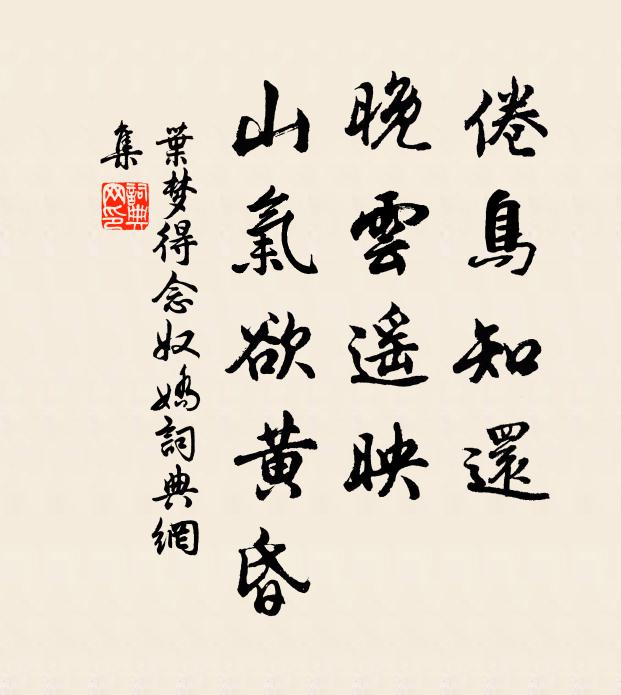 倦鳥知還
晚雲遥映
山氣欲黄昏
葉梦得念奴嬌詞典網
集
詞典
网印